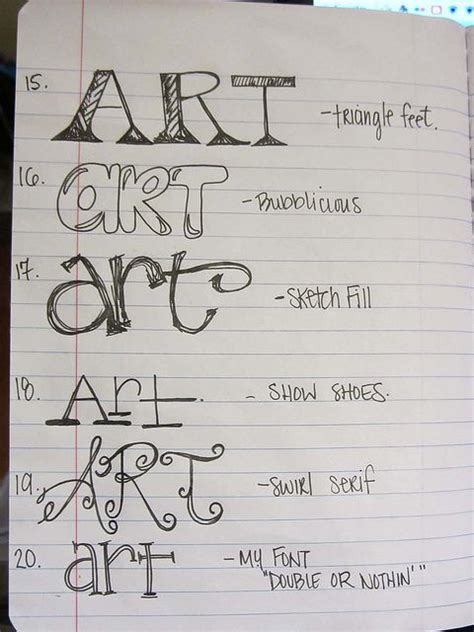 15. ART -triangle feet.
16. aRT -Bubblicious
17. art -Sketch Fill
18. Art. - SHOW SHOES.
19. ART -SWIRL SERIF
20. art -MY FONT
"DOUBLE OR NOTHIN'"